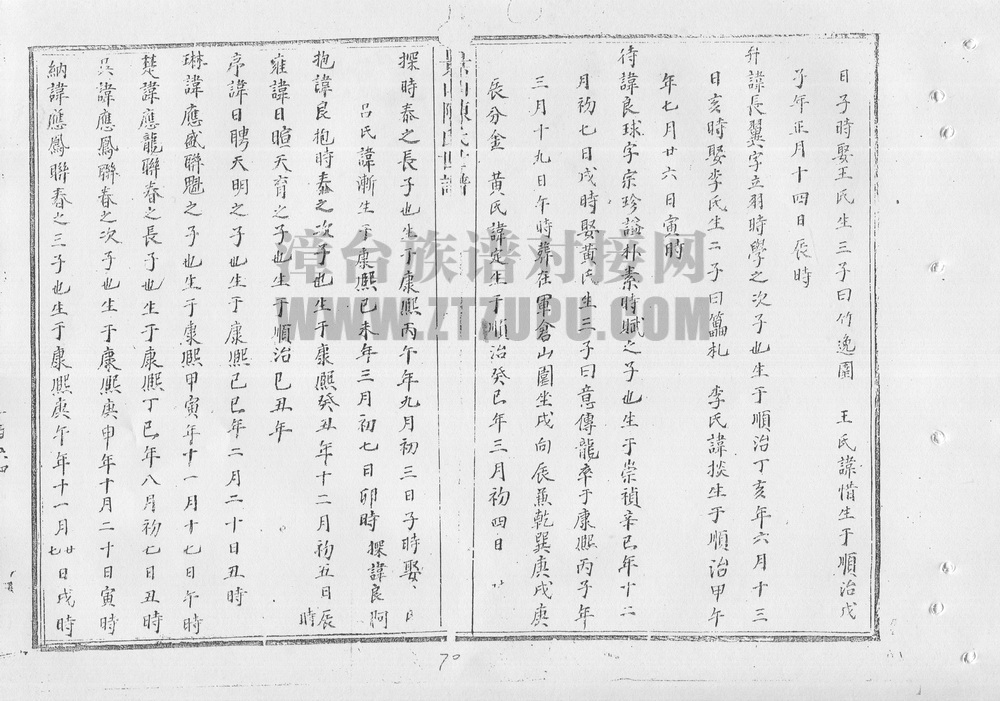 日子時娶王氏生三子曰竹逸園 王氏諱惜生于順治戊
子年正月十四日辰時
升諱長翼字立羽時學之次子也生于順治丁亥年六月十三
日亥時娶李氏生二子曰篇札 李氏諱掞生于順治甲午
年七月廿六日寅時
待諱良球字宗珍謚朴素時賦之子也生于崇禎辛巳年十二
月初七日戌時娶黃氏生三子曰意傳龍卒于康熙丙子年
三月十九日午時葬在軍倉山園坐戌向辰兼乾巽庚戌庚
辰分金 黃氏諱定生于順治癸巳年三月初四日
陳氏世譜
探時泰之長子也生于康熙丙午年九月初三日子時娶
呂氏諱漸生于康熙己未年三月初七日卯時 探諱良阿
抱諱良抱時泰之次子也生于康熙癸丑年十二月初五日辰時
雍諱日暄天育之子也生于順治己丑年
序諱日聘天明之子也生于康熙己巳年二月二十日丑時
琳諱應盛聯魁之子也生于康熙甲寅年十一月十七日午時
楚諱應龍聯春之長子也生于康熙丁巳年八月初七日丑時
吳諱應鳳聯春之次子也生于康熙庚申年十月二十日寅時
納諱應鳳聯春之三子也生于康熙庚午年十一月廿七日戌時
70
漳台族谱对接网
WWW.ZTZUPU.COM